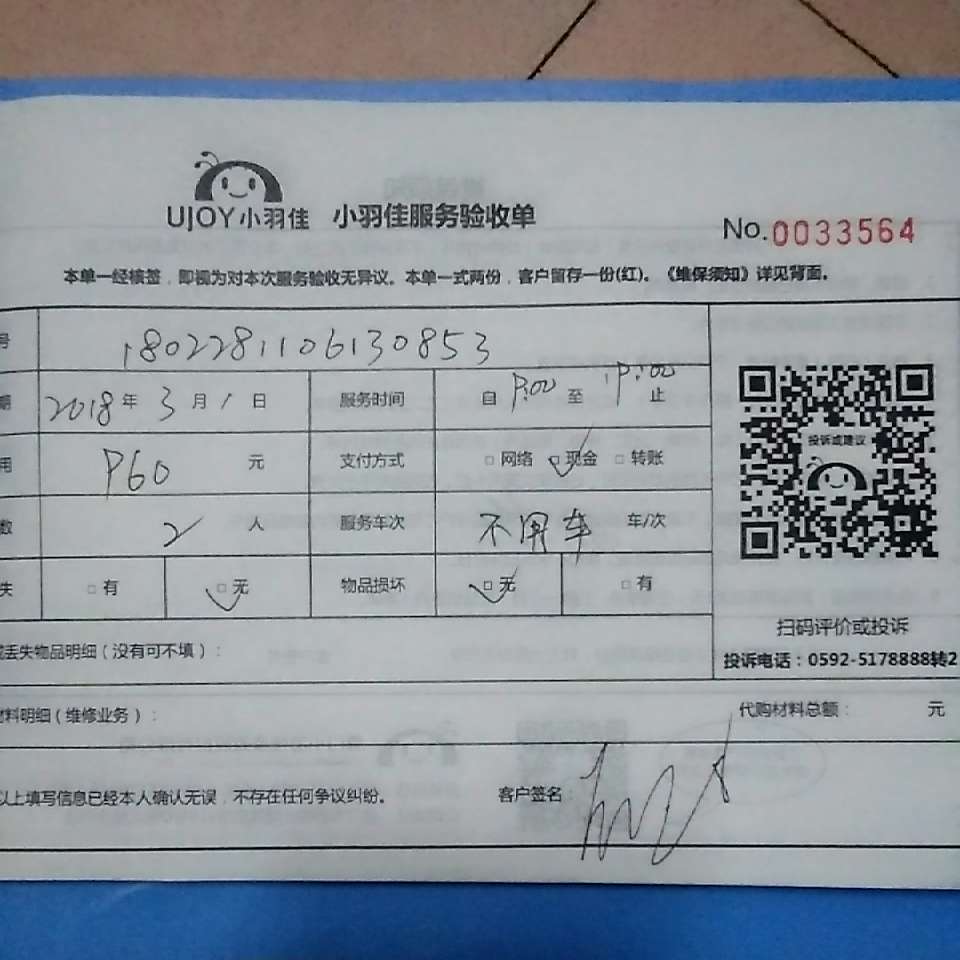 UJOY小羽佳 小羽佳服务验收单
No.0033564
本单一经核签，即视为对本次服务验收无异议。本单一式两份，客户留存一份(红)。《维保须知》详见背面。
号 1802281106130853
期 2018年3月1日 服务时间 自 至 止
用 960 元 支付方式 □网络 □现金 □转账
数 2 人 服务车次 不用车 车/次
失 □有 □无 物品损坏 □无 □有
投诉或建议
扫码评价或投诉
投诉电话：0592-5178888转2
丢失物品明细（没有可不填）：
材料明细（维修业务）： 代购材料总额： 元
以上填写信息已经本人确认无误，不存在任何争议纠纷。 客户签名：